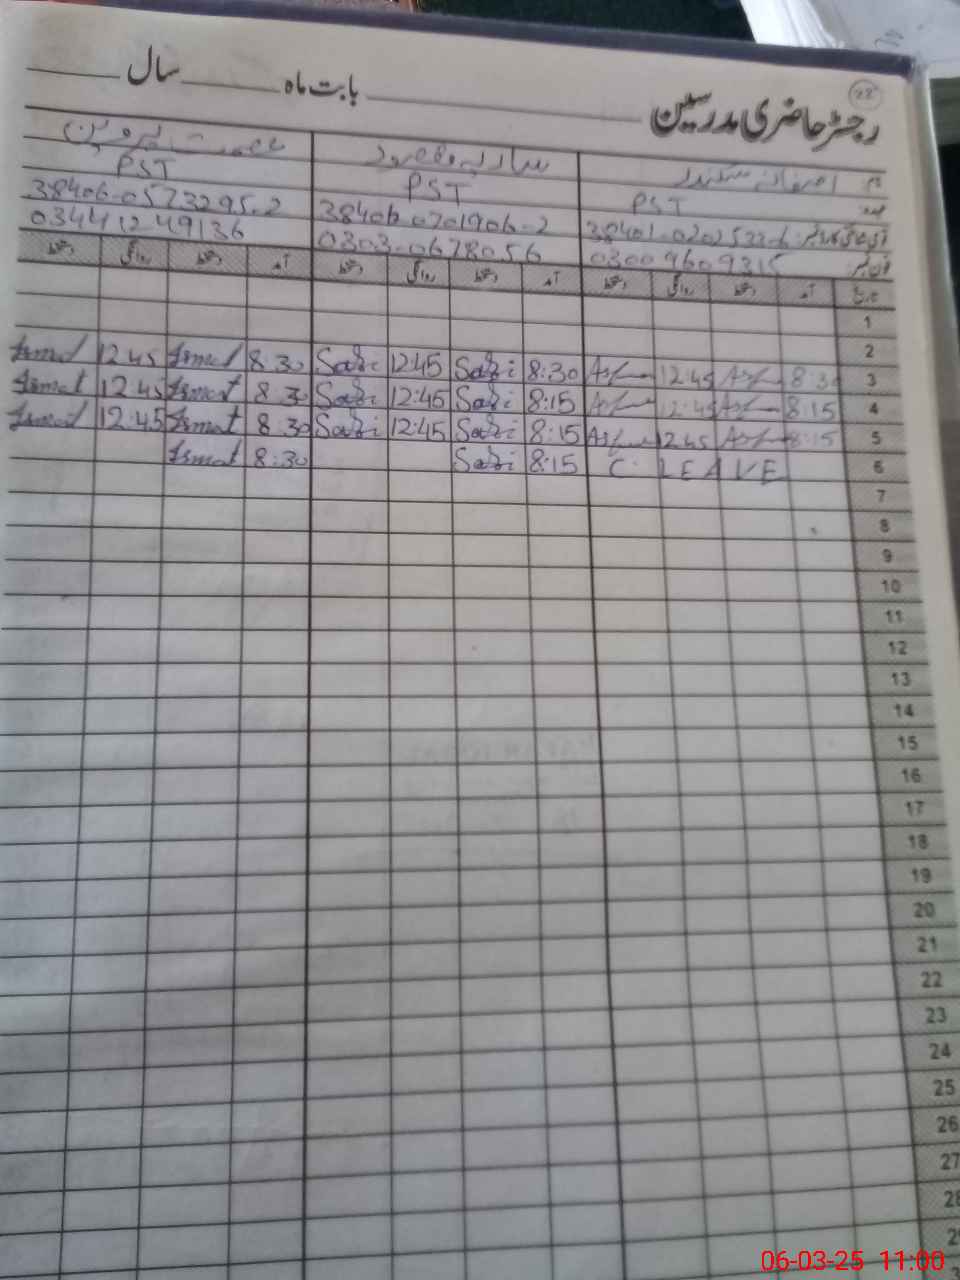 22
رجسٹر حاضری مدرسین بابت ماه سال
نام
عہدہ PST PST PST
شناختی کارڈ نمبر 38406-0701906-2 38406-0573295-2
فون نمبر 03009609315 0303-0678056 03441249136
تاریخ آمد دستخط روانگی دستخط آمد دستخط روانگی دستخط آمد دستخط روانگی دستخط
1
2
Ismat 12:45 Ismat 8:30 Sadi 12:45 Sadi 8:30 12:45 8:30 3
Ismat 12:45 Ismat 8:30 Sadi 12:45 Sadi 8:15 12:45 8:15 4
Ismat 12:45 Ismat 8:30 Sadi 12:45 Sadi 8:15 12:45 8:15 5
Ismat 8:30 Sadi 8:15 C. LEAVE 6
7
8
9
10
11
12
13
14
15
16
17
18
19
20
21
22
23
24
25
26
27
28
06-03-25 11:00